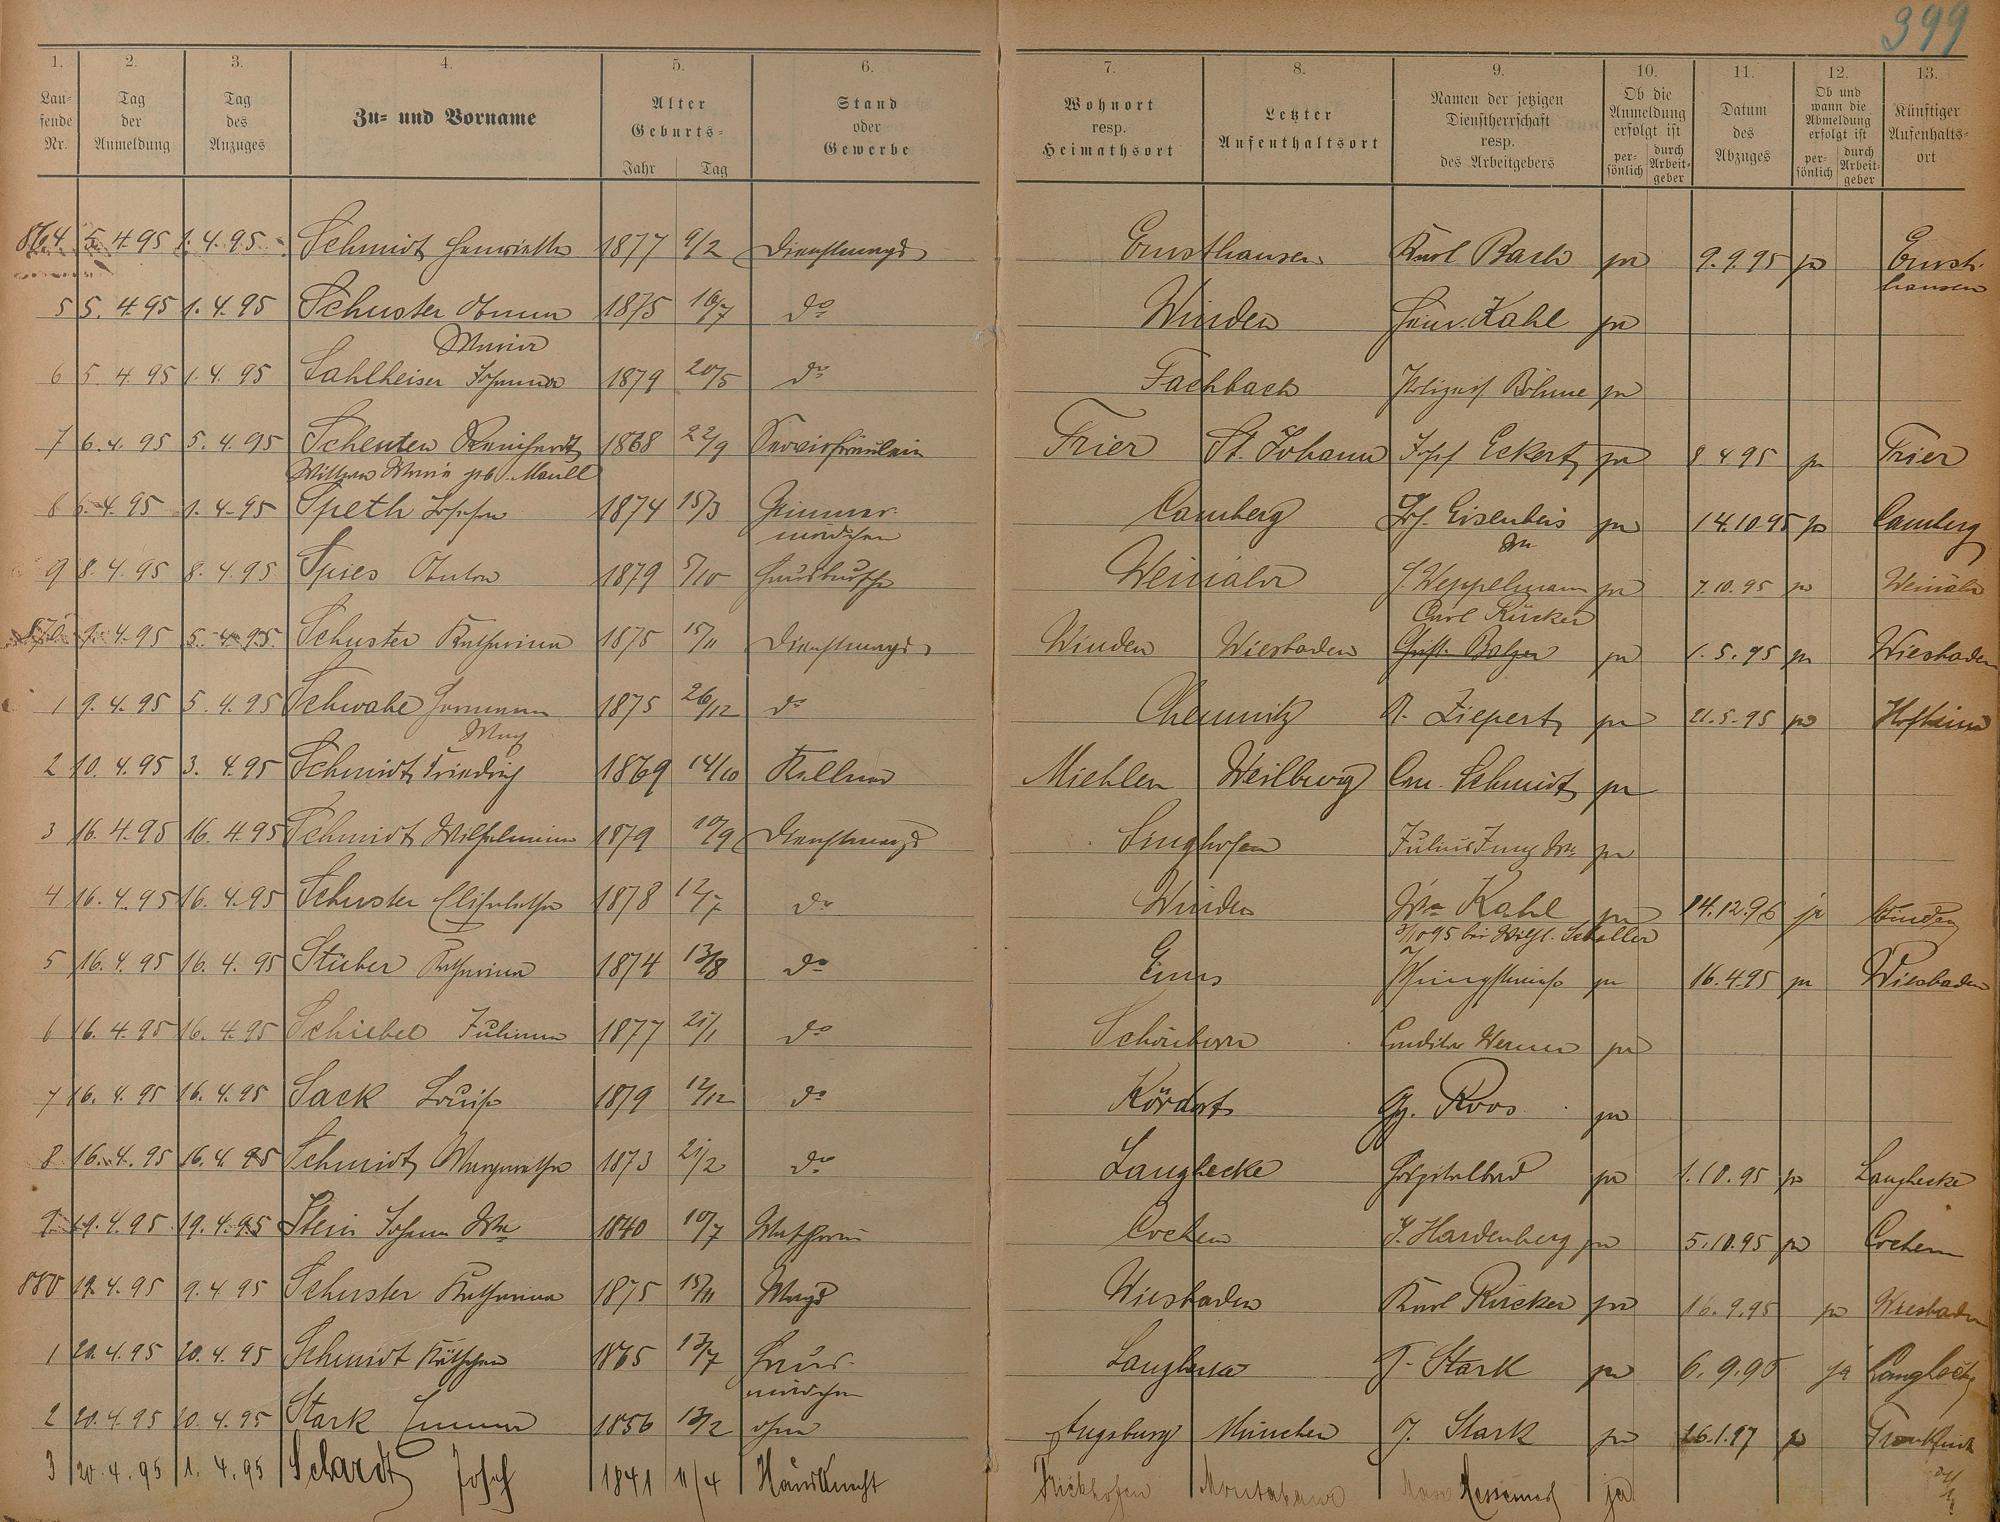 399
1. 2. 3. 4. 5. 6. 7. 8. 9. 10. 11. 12. 13.
Laufende Nr. Tag der Anmeldung Tag des Anzuges Zu- und Vorname Alter Geburts- Jahr Tag Stand oder Gewerbe Wohnort resp. Heimathsort Letzter Aufenthaltsort Namen der jetzigen Dienstherrschaft resp. des Arbeitgebers Ob die Anmeldung erfolgt ist persönlich durch Arbeitgeber Datum des Abzuges Ob und wann die Abmeldung erfolgt ist persönlich durch Arbeitgeber Künftiger Aufenthaltsort
864 5.4.95 1.4.95 Schmidt Henriette 1877 9/2 Dienstmagd Ernsthausen Karl Bach ja 9.9.95 ja Ernsthausen
5 5.4.95 1.4.95 Schuster Anna 1875 10/7 do Winden Heinr. Kahl ja
Maria
6 5.4.95 1.4.95 Sahlheiser Johanna 1879 20/5 do Fachbach Böhme ja
7 6.4.95 5.4.95 Scheuten Reinhardt 1868 22/9 Servierfräulein Trier St. Johann Josef Eckert ja 8.4.95 ja Trier
Wittwe Maria geb. Maull
8 6.4.95 1.4.95 Speth 1874 15/3 Zimmermädchen Camberg Jos. Eisenbeis ja 14.10.95 ja Camberg
9 8.4.95 8.4.95 Spies Anton 1879 5/10 Hausbursche Weinähr J. Weppelmann ja 7.10.95 ja Weinähr
Carl Rücker
870 9.4.95 5.4.95 Schuster Katharina 1875 15/11 Dienstmagd Winden Wiesbaden Balzer ja 1.5.95 ja Wiesbaden
1 9.4.95 5.4.95 Schwabe 1875 26/12 do Chemnitz R. Ziepert ja 21.5.95 ja Hofheim
2 10.4.95 3.4.95 Schmidt Friedrich 1869 14/10 Kellner Miehlen Weilburg Schmidt ja
3 16.4.95 16.4.95 Schmidt Wilhelmine 1879 10/9 Dienstmagd Singhofen Julius Jung Ww. ja
4 16.4.95 16.4.95 Schuster Elisabetha 1878 12/7 do Winden Ww Kahl ja 14.12.96 ja Winden
bei Wilh. Schaller
5 16.4.95 16.4.95 Stüber Katharina 1874 13/8 do Ems ja 16.4.95 ja Wiesbaden
6 16.4.95 16.4.95 Schiebel Juliana 1877 21/1 do Schönborn Conditor Werner ja
7 16.4.95 16.4.95 Sack Louise 1879 12/12 do Kördorf Gg. Roos ja
8 16.4.95 16.4.95 Schmidt Margaretha 1873 21/2 do Langhecke Hospitalbad ja 1.10.95 ja Langhecke
9 19.4.95 19.4.95 Stein Johann Ww 1840 10/7 Cochem J. Hardenberg ja 5.10.95 ja Cochem
880 19.4.95 9.4.95 Schuster Katharina 1875 15/11 Magd Wiesbaden Karl Rücker ja 16.9.95 ja Wiesbaden
1 20.4.95 20.4.95 Schmidt Käthchen 1865 13/7 Hausmädchen Langhecke J. Stark ja 6.9.95 ja Langhecke
2 20.4.95 20.4.95 Stark Emma 1856 13/2 ohne Augsburg München J. Stark ja 26.1.97 ja Frankfurt
3 20.4.95 1.4.95 Schardt Josef 1841 11/4 Hausknecht Frickhofen Montabaur ja